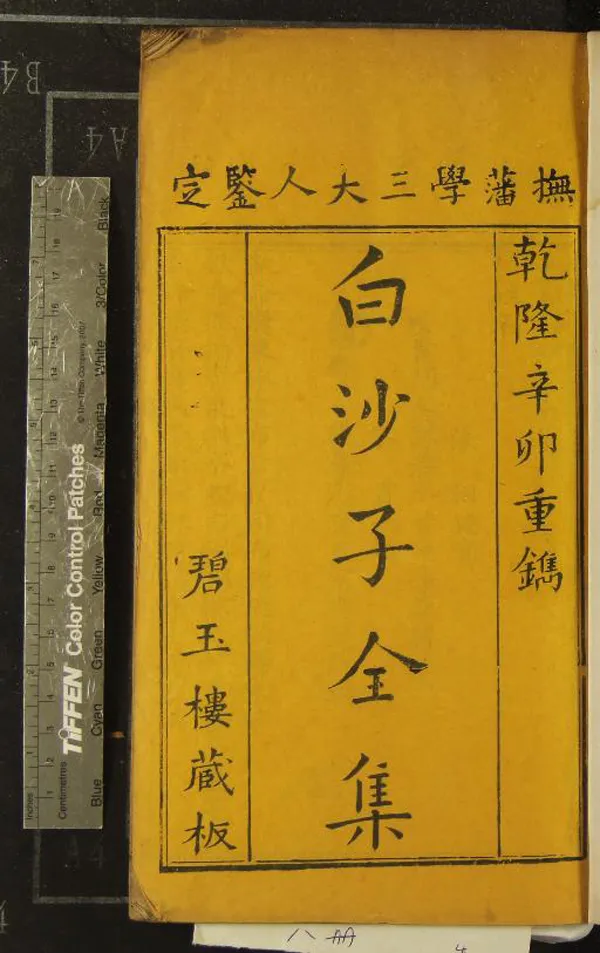 撫藩學三大人鑒定
乾隆辛卯重鐫
白沙子全集
碧玉樓蔵板
TIFFEN Color Control Patches
© The Tiffen Company, 2007
Blue Cyan Green Yellow Red Magenta White 3/Color Black
Inches
Centimetres
1 2 3 4 5 6 7 8 9 10 11 12 13 14 15 16 17 18 19
B4
A4
八册